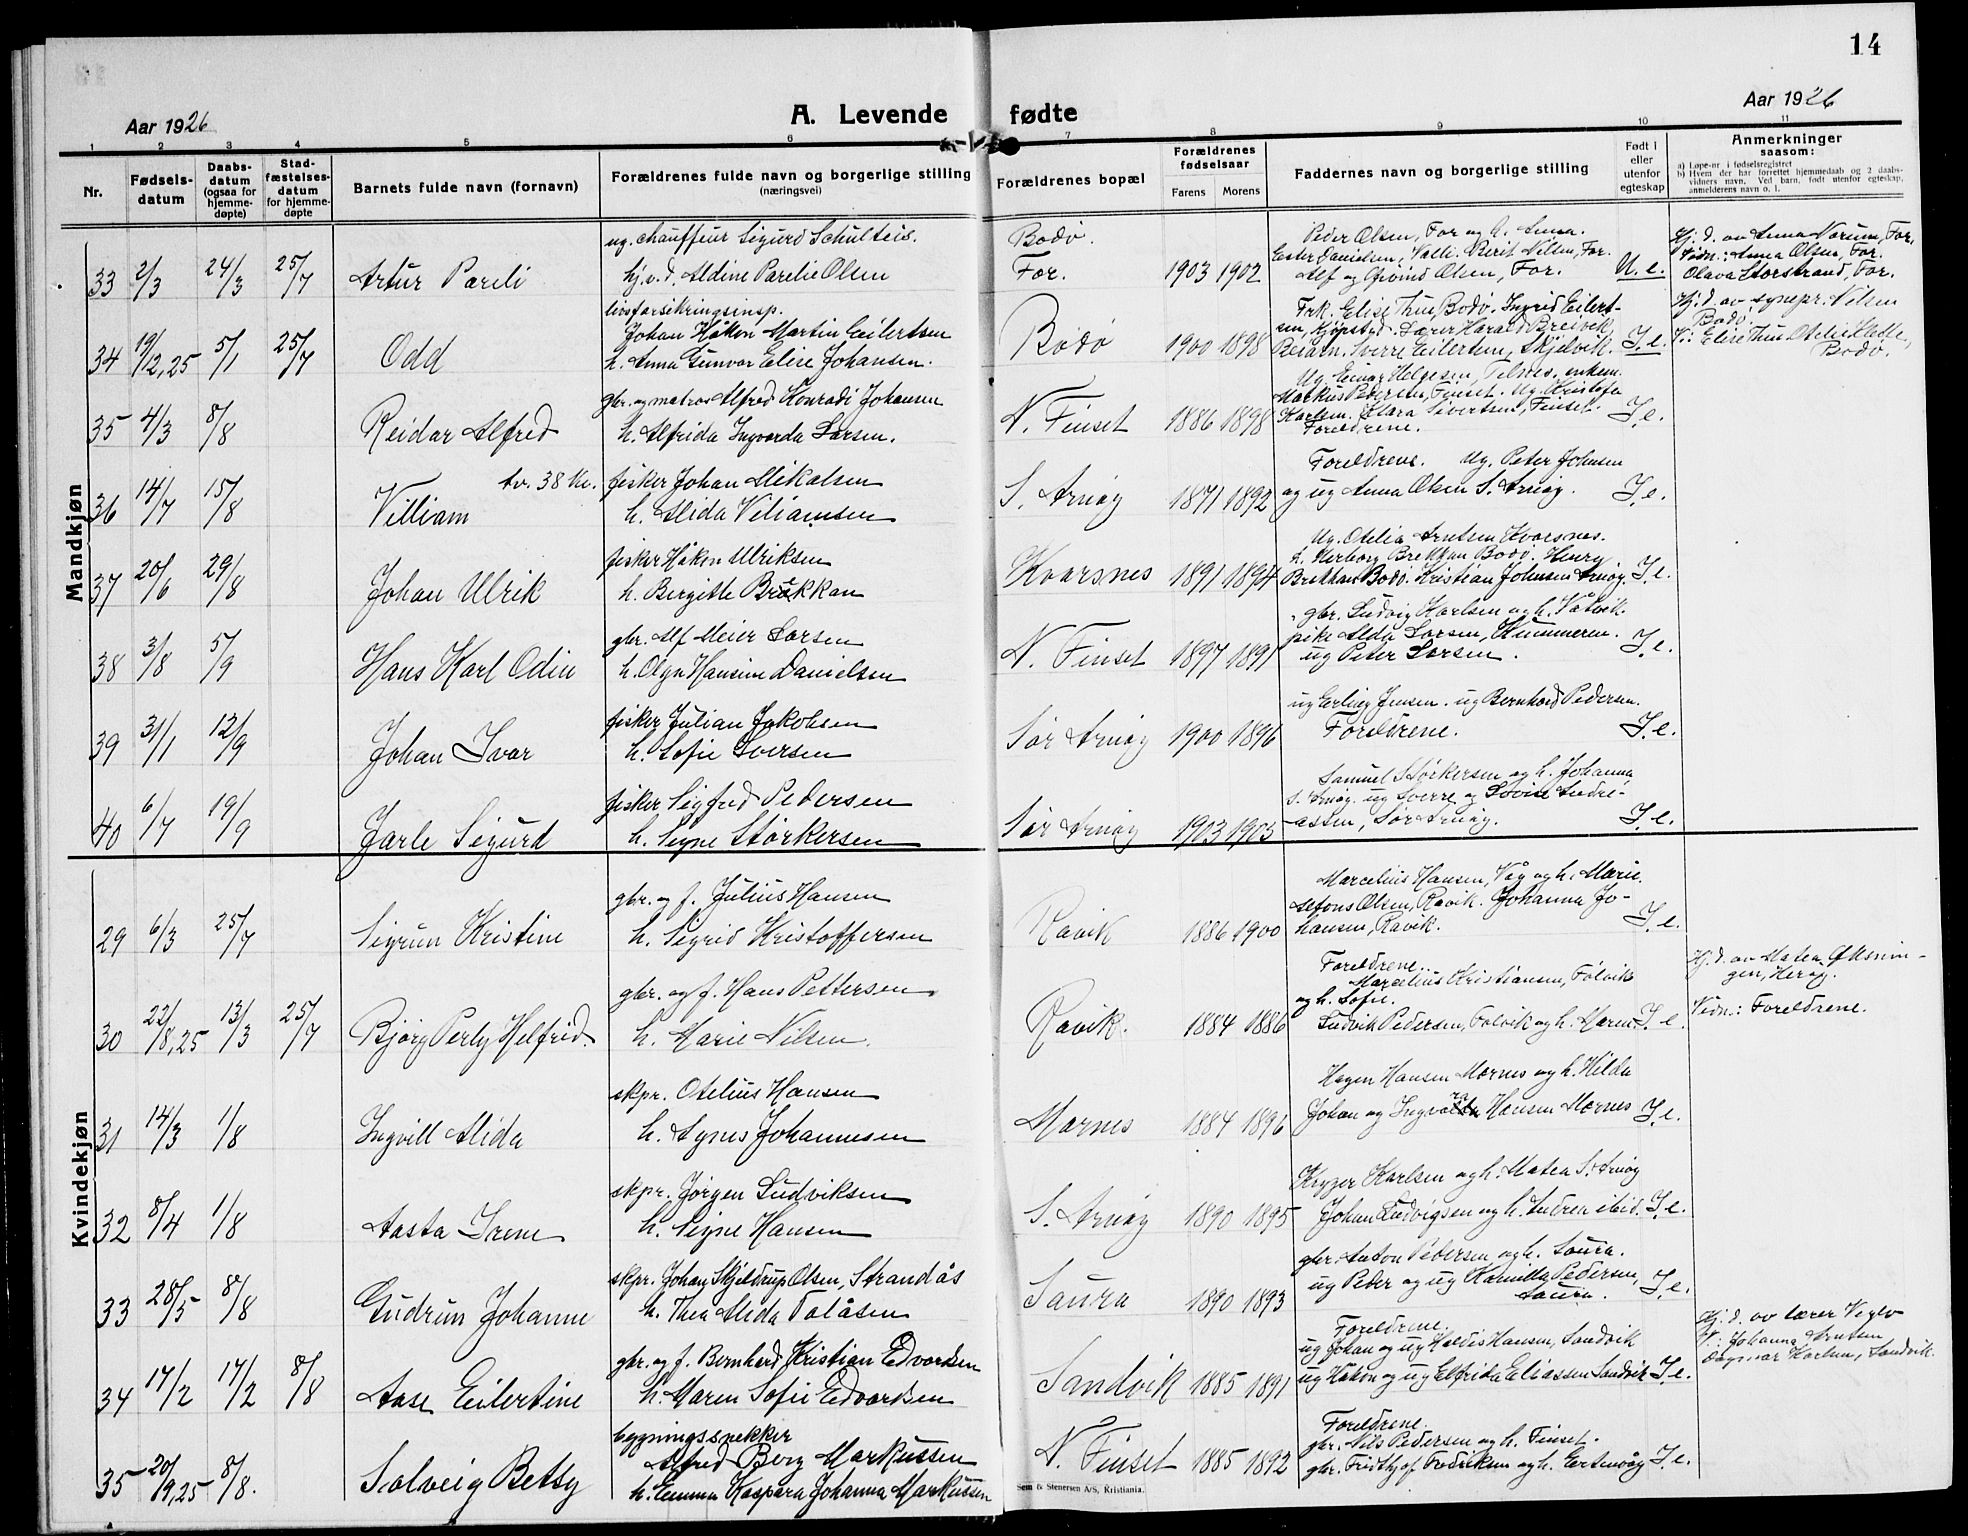 14
Aar 1926
A. Levende fødte
Aar 1926
1 2 3 4 5 6 7 8 9 10 11
Nr.
Fødsels-
datum
Daabs-
datum
(ogsaa for
hjemme-
døpte)
Stad-
fæstelses-
datum
for hjemme-
døpte
Barnets fulde navn (fornavn)
Forældrenes fulde navn og borgerlige stilling
(næringsvei)
Forældrenes bopæl
Forældrenes
fødselsaar
Farens Morens
Faddernes navn og borgerlige stilling
Født i
eller
utenfor
egteskap
Anmerkninger
saasom:
a) Løpe-nr. i fødselsregistret
b) Hvem der har forrettet hjemmedaab og 2 daabs-
vidners navn. Ved barn, født utenfor egteskap,
anmelderens navn o. l.
Mandkjøn
ug. chauffeur Sigurd Schulteis. Bodø. Peder Olsen, For og h. Anna. Hj. d. av Anna Norum, For.
33 2/3 24/3 25/7 Artur Pareli hj.v.d. Aldine Parelie Olsen For. 1903 1902 Ester Danielsen, Valli. Berit Nilsen, For. U. e. Vidn.: Anna Olsen, For.
Alf og Øivind Olsen, For. Olava Storstrand, For.
livsforsikringsinsp. Frk. Elise Thue, Bodø. Ingrid Eilert- Hj. d. av synepr. Nilsen
34 19/12,25 5/1 25/7 Odd Johan Håkon Martin Eilertsen Bodø 1900 1898 sen, Kjøpstad. Lærer Harald Breivik, I. e. Bodø
h. Anna Gunvor Elise Johansen. Sverre Eilertsen, Skjelvik. V.: Elise Thue Otelie
Bodø.
gbr. og matros Alfred Konradi Johansen Ug. Einar Helgesen, enkem.
35 4/3 8/8 Reidar Alfred h. Alfrida Ingvarda Larsen. N. Finset 1886 1898 Markus Pedersen, Finset. Ug. Kristofa I. e.
Karlsen. Klara Sivertsen, Finset.
Foreldrene.
Av. 38 Kr. fisker Johan Mikalsen Foreldrene. Ug. Peter Johnsen
36 14/7 15/8 Villiam h. Alida Viliamsen S. Arnøy 1871 1892 og ug Anna Olsen S. Arnøy. I. e.
fisker Håkon Ulriksen Ug. Otelia Arntsen Kvarsnes.
37 20/6 29/8 Johan Ulrik h. Bergitte Brækkan Kvarsnes 1891 1894 h. Herborg Brekkan Bodø. Henry I. e.
Brekkan Bodø. Kristian Johnsen Arnøy
gbr. Alf Meier Larsen gbr. Ludvig Karlsen og h. Våtvik.
38 3/8 5/9 Hans Karl Odin h. Olga Hansine Danielsen N. Finset 1897 1891 pike Alda Larsen, I. e.
ug Peter Larsen.
fisker Julian Jakobsen ug Erling Jensen. ug Bernhard Pedersen.
39 31/1 12/9 Johan Ivar h. Sofie Iversen Sør Arnøy 1900 1896 Foreldrene. I. e.
fisker Sigfred Pedersen Samuel Størkersen og h. Johanna
40 6/7 19/9 Jarle Sigurd h. Signe Størkersen Sør Arnøy 1903 1905 S. Arnøy. ug Sverre og Lovise Andre- I. e.
assen, Sør Arnøy.
Kvindekjøn
gbr. og f. Julius Hansen Marcelius Hansen, Våg og h. Marie.
29 6/3 25/7 Sigrun Kristine h. Sigrid Kristoffersen Ravik 1886 1900 Alfons Olsen, Ravik. Johanna Jo- I. e.
hansen, Ravik.
gbr. og f. Hans Pettersen Foreldrene. Hj. d. av Matea
30 22/8,25 13/3 25/7 Bjørg Perly Helfrid. h. Marie Nilsen. Ravik. 1884 1886 Marcelius Kristiansen, Følvik
og h. Sofie. Vidn.: Foreldrene.
Ludvik Pedersen, Følvik og h. Maren I. e.
skpr. Otelius Hansen Hagen Hansen Mornes og h. Hilda
31 14/3 1/8 Ingvill Alida h. Agnes Johannesen Mornes 1884 1896 Johan og Ingvara Hansen Mornes I. e.
skpr. Jørgen Ludviksen Karlsen og h. Matea S. Arnøy
32 8/4 1/8 Aasta Irene h. Signe Hansen S. Arnøy 1890 1895 Johan Ludvigsen og h. Andrea ibid. I. e.
skpr. Johan Skjeldrup Olsen, Strandås gbr. Anton Pedersen og h. Saura.
33 28/5 8/8 Gudrun Johanne h. Thea Alida Valåsen Saura 1890 1893 ug Peder og ug Kamilla Pedersen, I. e.
Saura.
gbr. og f. Bernhard Kristian Edvardsen Foreldrene. Hj. d. av lærer
34 17/2 17/2 8/8 Aase Eilertine h. Maren Sofie Edvardsen Sandvik 1885 1891 ug Johan og ug Haldis Hansen, Sandvik V.: Johanna Arntsen
ug Håkon og ug Elfrida Eliassen Sandvik I. e. Dagmar Karlsen, Sandvik.
bygningssnekker Foreldrene.
35 20/9,25 8/8. Solveig Betsy Alfred Berg Markussen N. Finset 1885 1892 gbr. Nils Pedersen og h. Finset.
h. Emma Kaspara Johanna Markussen gbr. Fridtjof Fredriksen og h. I. e.
Sem & Stenersen A/S, Kristiania.